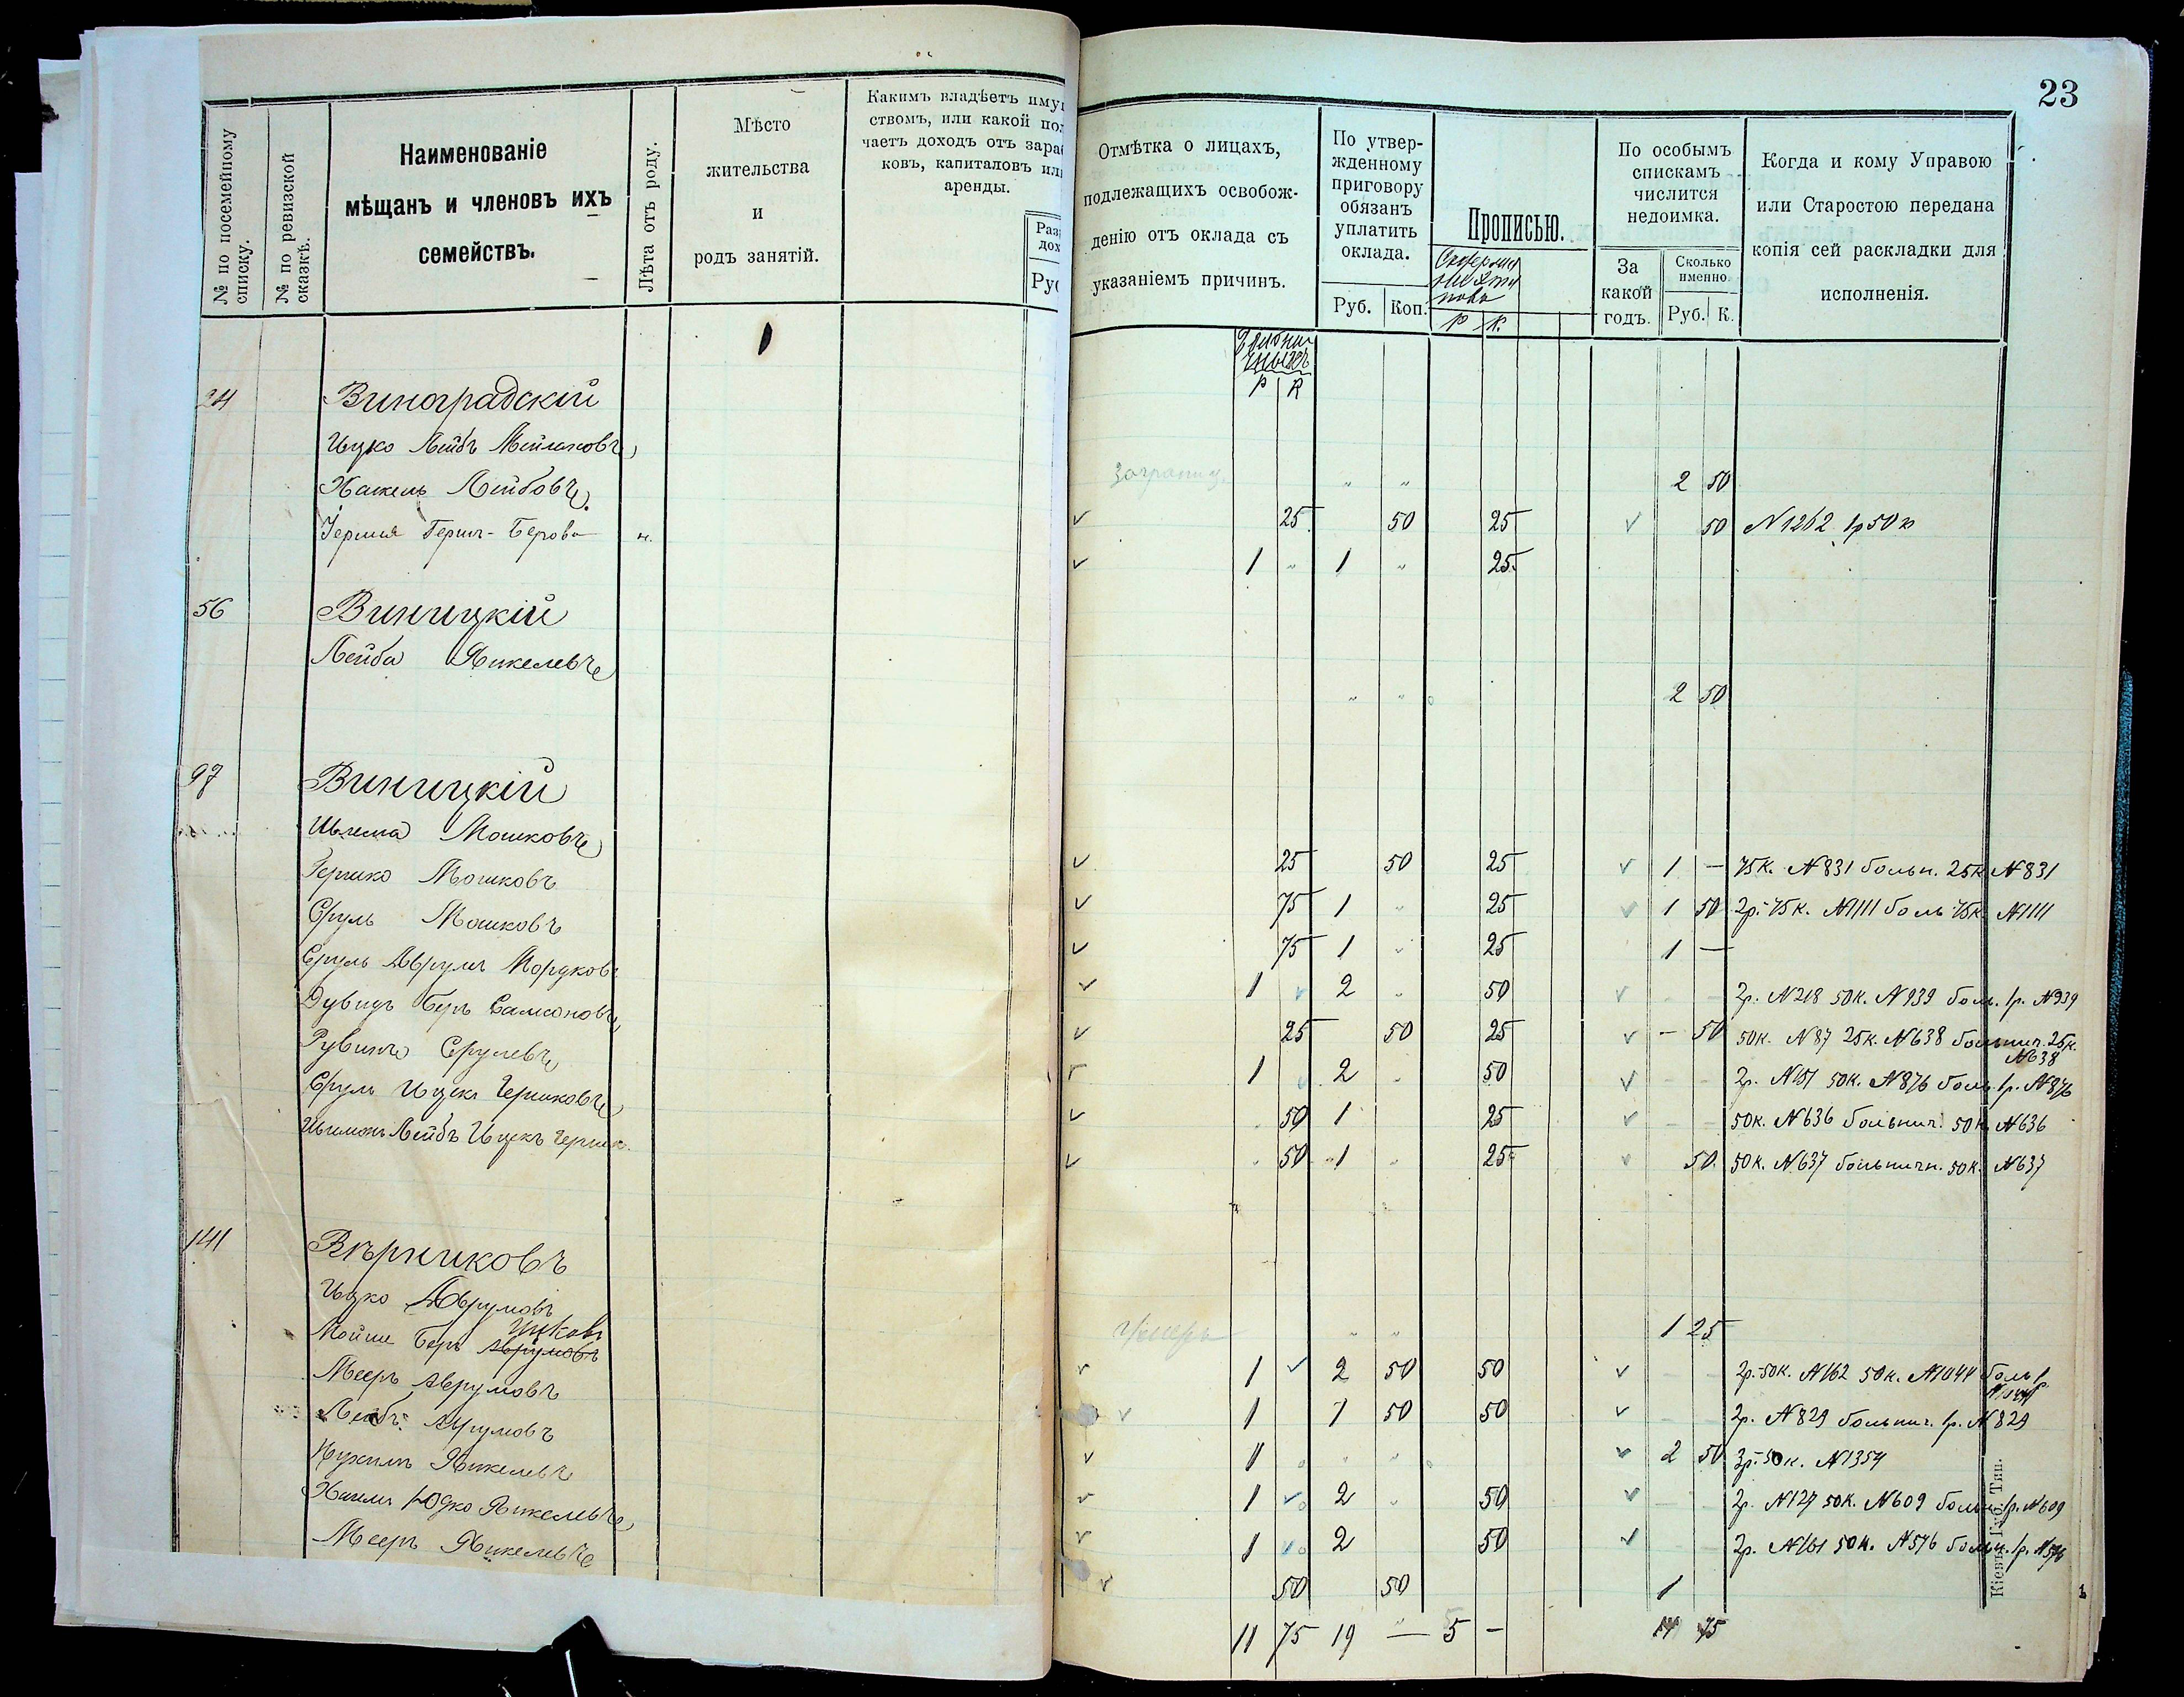 23
№ по посемейному списку.
№ по ревизской сказкѣ.
Наименованіе
мѣщанъ и членовъ ихъ
семействъ.
Лѣта отъ роду.
Мѣсто
жительства
и
родъ занятій.
Какимъ владѣетъ иму
ствомъ, или какой пол
чаетъ доходъ отъ зараб
ковъ, капиталовъ или
аренды.
Раз
дох
Руб
Отмѣтка о лицахъ,
подлежащихъ освобож-
денію отъ оклада съ
указаніемъ причинъ.
По утвер-
жденному
приговору
обязанъ
уплатить
оклада.
Руб. Коп.
Прописью.
Р К.
По особымъ
спискамъ
числится
недоимка.
За
какой
годъ.
Сколько
именно.
Руб. К.
Когда и кому Управою
или Старостою передана
копія сей раскладки для
исполненія.
Р К
24 Виноградскій
Ицко Лейбъ
Хаскель Лейбовъ
Гершъ-Берова н.
Заграниц. " " 2 50
25 50 25 50 №1262 1р 50к
1 " 1 " 25
56 Виницкій
Лейба Янкелевъ
" " 2 50
97 Виницкій
Шлема Мошковъ
Гершко Мошковъ
Сруль Мошковъ
Сруль Аврумъ Мордков
Дувидъ Беръ Самсоновъ
Рувинъ Срулевъ
Сруль Ицекъ Гершковъ
Шлиома Лейбъ Ицекъ Гершк.
25 50 25 1 — 75к. №831 больн. 25к №831
75 1 " 25 1 50 2р. 75к. №1111 боль 75к №1111
75 1 " 25 1 —
1 2 " 50 2р. №218 50к. №939 боль. 1р. №939
25 50 25 — 50 50к. №87 25к. №638 больнич. 25к.
№638
1 2 " 50 2р. №151 50к. №876 боль. 1р. №876
50 1 25 50к. №636 больнич. 50к №636
50 1 " 25 50 50к. №637 больничн. 50к. №637
141 Вѣрниковъ
Ицко Аврумовъ
Ицковъ
Мойше Беръ Аврумовъ
Мееръ Аврумовъ
Лейбъ Аврумовъ
Нухимъ Янкелевъ
Хаимъ Юдко Янкелевъ
Мееръ Янкелевъ
Умеръ " " 1 25
1 2 50 50 2р. 50к. №162 50к. №1044 боль 1р
№1044
1 1 50 50 2р. №829 больнич. 1р. №829
1 " " 2 50 3р. 50к. №1354
1 2 " 50 2р. №127 50к. №609 больн. 1р. №609
1 2 50 2р. №161 50к. №576 больн. 1р. №576
50 50 1
11 75 19 " — 5 — 14 75
Кіевъ. Губ. Тип.